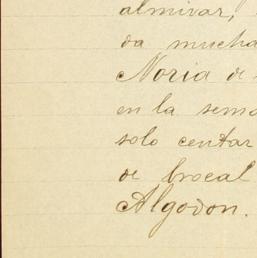 almivar,
da mucha
Noria de
en la sema
solo centar
de brocal
Algodon.